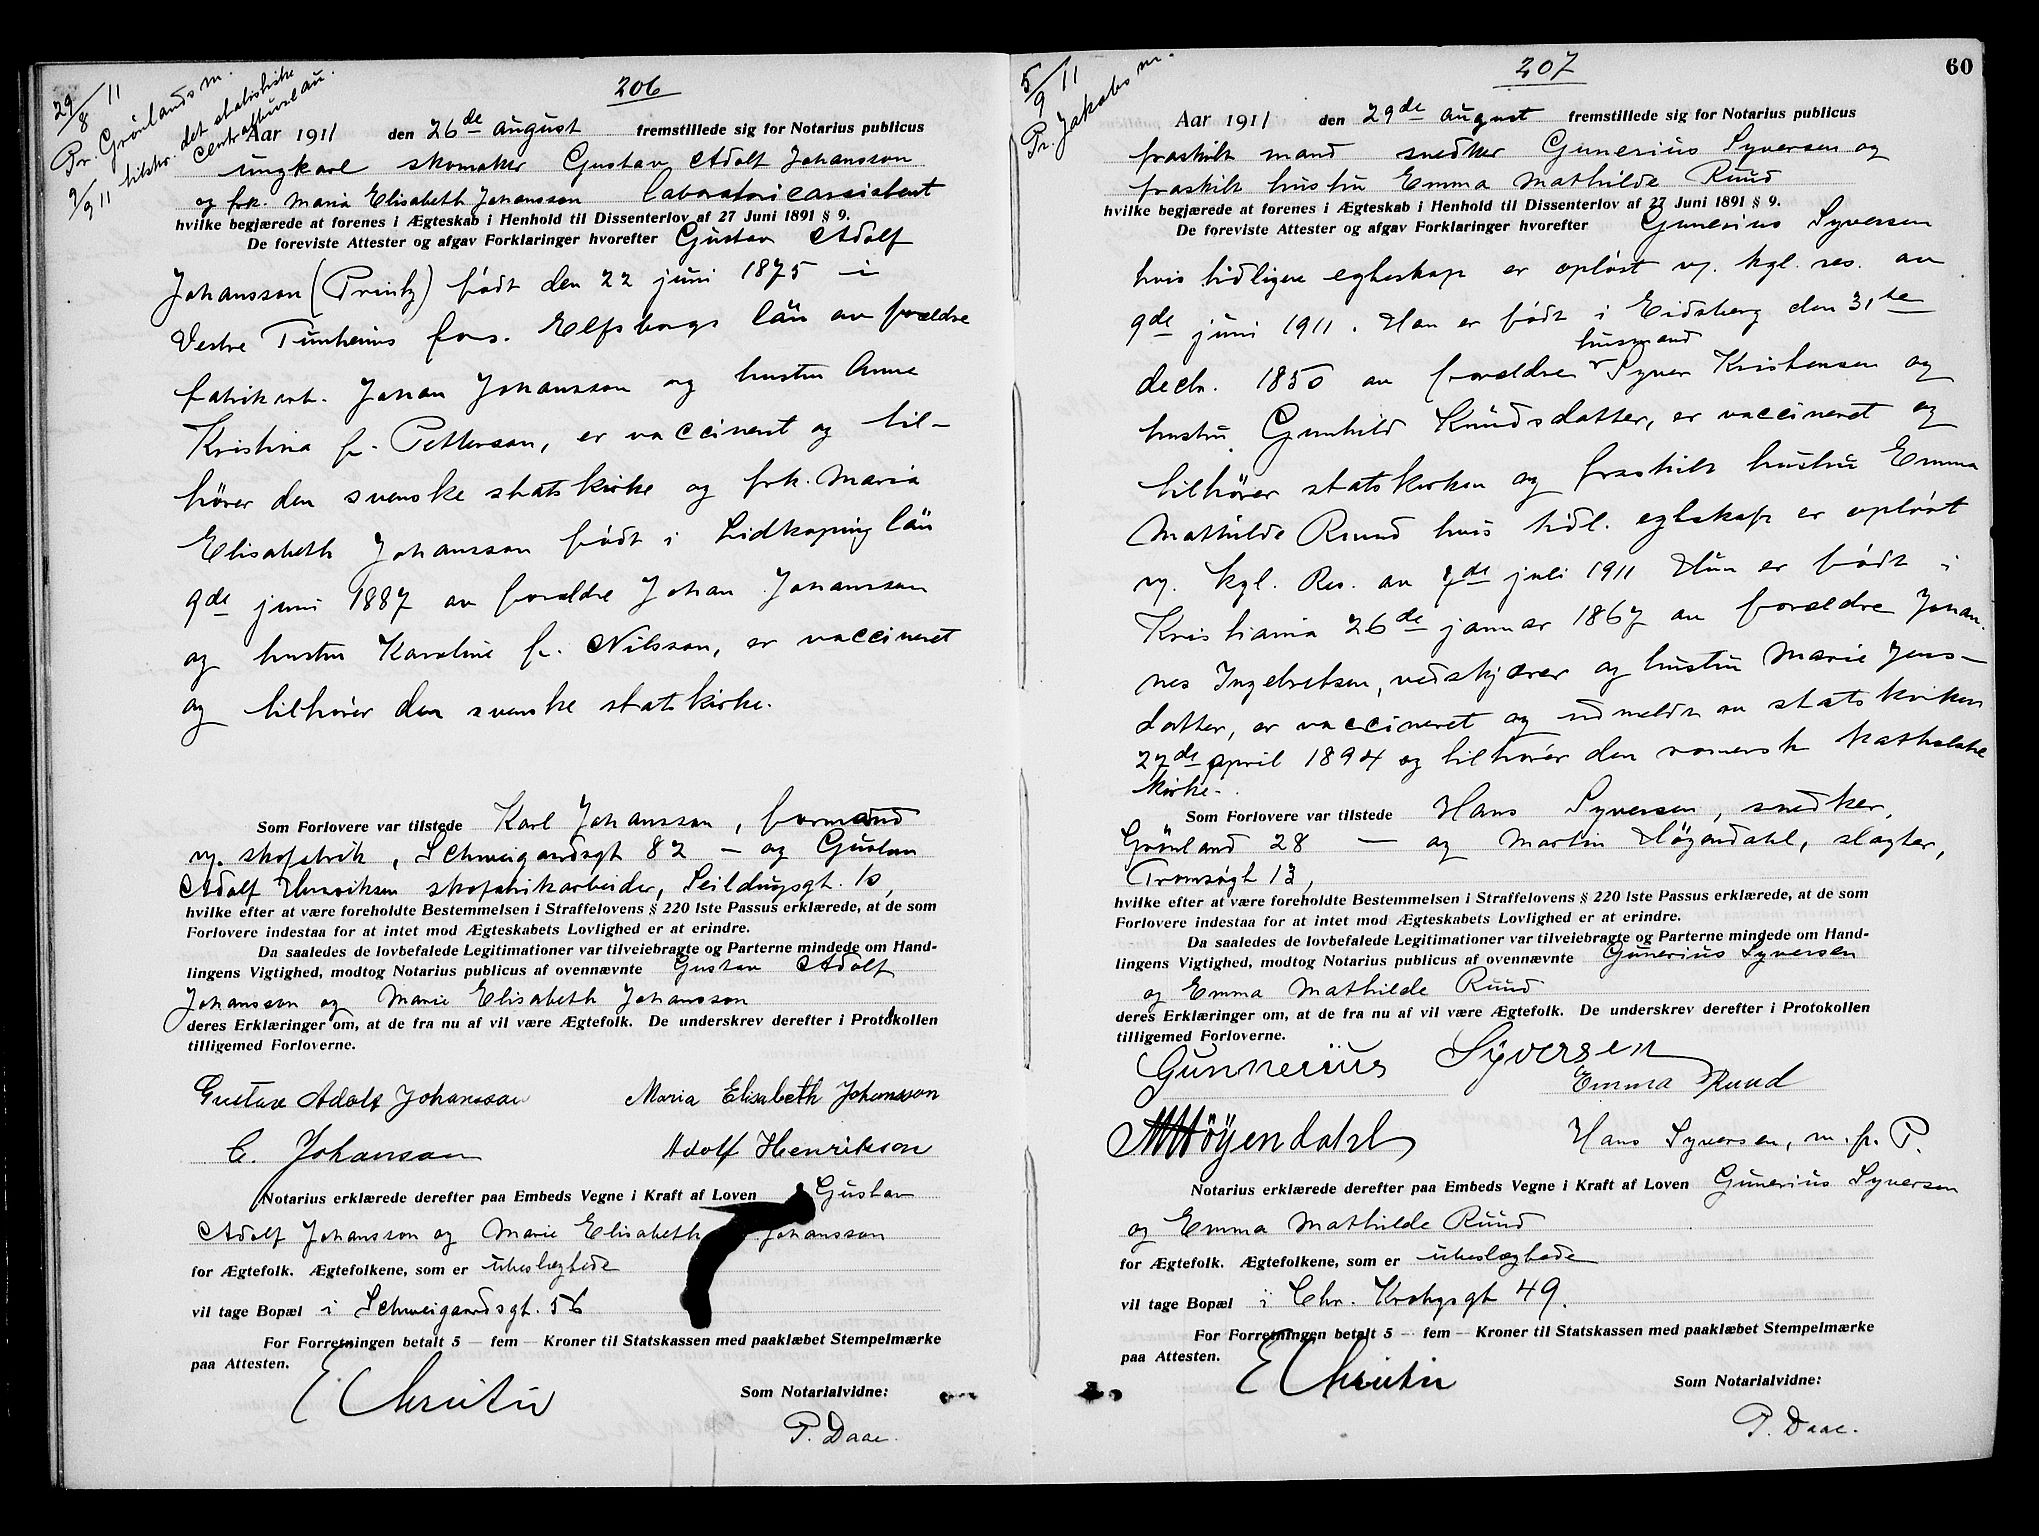 29/8 11
Pr. Grönlands m.
9/9 11 tilskr. det statistiske
centralbureau.
206
Aar 1911 den 26de august fremstillede sig for Notarius publicus
ungkarl skomaker Gustav Adolf Johansson
og frk. Maria Elisabeth Johansson laboratorieassistent
hvilke begjærede at forenes i Ægteskab i Henhold til Dissenterlov af 27 Juni 1891 § 9.
De foreviste Attester og afgav Forklaringer hvorefter Gustav Adolf
Johansson (Printz) född den 22 juni 1875 i
Vestre Tunhems fors. Elfsborgs län av forældre
fabrikarb. Johan Johansson og hustru Anna
Kristina f. Petterson, er vaccineret og til-
hörer den svenske statskirke og frk. Maria
Elisabeth Johansson födt i Lidkøping län
9de juni 1887 av forældre Johan Johansson
og hustru Karoline f. Nilsson, er vaccineret
og tilhörer den svenske statskirke.
Som Forlovere var tilstede Karl Johansson, formand
v. skofabrik, Schweigaardsgt 82 — og Gustav
Adolf Henriksen skofabrikarbeider, Seildugsgt. 10,
hvilke efter at være foreholdte Bestemmelsen i Straffelovens § 220 1ste Passus erklærede, at de som
Forlovere indestaa for at intet mod Ægteskabets Lovlighed er at erindre.
Da saaledes de lovbefalede Legitimationer var tilveiebragte og Parterne mindede om Hand-
lingens Vigtighed, modtog Notarius publicus af ovennævnte Gustav Adolf
Johansson og Marie Elisabeth Johansson
deres Erklæringer om, at de fra nu af vil være Ægtefolk. De underskrev derefter i Protokollen
tilligemed Forloverne.
Gustav Adolf Johansson Maria Elisabeth Johansson
C. Johanson Adolf Henrikson
Notarius erklærede derefter paa Embeds Vegne i Kraft af Loven Gustav
Adolf Johansson og Marie Elisabeth Johansson
for Ægtefolk. Ægtefolkene, som er ubeslægtede
vil tage Bopæl i Schweigaardsgt. 56
For Forretningen betalt 5 — fem — Kroner til Statskassen med paaklæbet Stempelmærke
paa Attesten.
Som Notarialvidne:
P. Daae.
5/9 11
Pr. Jakobs m.
207
60
Aar 1911 den 29de august fremstillede sig for Notarius publicus
fraskilt mand snedker Gunerius Syversen og
fraskilt hustru Emma Mathilde Ruud
hvilke begjærede at forenes i Ægteskab i Henhold til Dissenterlov af 27 Juni 1891 § 9.
De foreviste Attester og afgav Forklaringer hvorefter Gunerius Syversen
hvis tidligere egteskap er oplöst v. kgl. res. av
9de juni 1911. Han er födt i Eidsberg den 31te
husmand
decbr. 1850 av forældre Syver Kristensen og
hustru Gunhild Knudsdatter, er vaccineret og
tilhörer statskirken og fraskilt hustru Emma
Mathilde Ruud hvis tidl. egteskap er oplöst
v. kgl. Res. av 7de juli 1911 Hun er födt i
Kristiania 26de januar 1867 av forældre Johan-
nes Ingebretsen, vedskjærer og hustru Marie Jens-
datter, er vaccineret og udmeldt av statskirken
27de april 1894 og tilhörer den romersk katholske
kirke.
Som Forlovere var tilstede Hans Syversen, snedker,
Grönland 28 — og Martin Höyendahl, slagter,
Tromsögt 13,
hvilke efter at være foreholdte Bestemmelsen i Straffelovens § 220 1ste Passus erklærede, at de som
Forlovere indestaa for at intet mod Ægteskabets Lovlighed er at erindre.
Da saaledes de lovbefalede Legitimationer var tilveiebragte og Parterne mindede om Hand-
lingens Vigtighed, modtog Notarius publicus af ovennævnte Gunerius Syversen
og Emma Mathilde Ruud
deres Erklæringer om, at de fra nu af vil være Ægtefolk. De underskrev derefter i Protokollen
tilligemed Forloverne.
Gunnerius Syversen
Emma Ruud
M Höyendahl Hans Syversen, m. p. P.
Notarius erklærede derefter paa Embeds Vegne i Kraft af Loven Gunerius Syversen
og Emma Mathilde Ruud
for Ægtefolk. Ægtefolkene, som er ubeslægtede
vil tage Bopæl i Chr. Krohgsgt 49.
For Forretningen betalt 5 — fem — Kroner til Statskassen med paaklæbet Stempelmærke
paa Attesten.
Som Notarialvidne:
P. Daae.